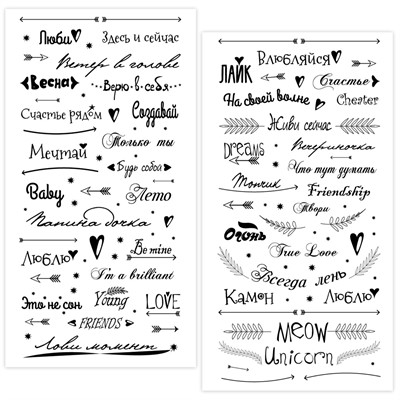 Люби Здесь и сейчас
Ветер в голове
Весна Верю в себя
Счастье рядом Создавай
Только ты
Мечтай
Будь собой
Baby Лето
Папина дочка
Люблю Be mine
I'm a brilliant
Это не сон Young LOVE
FRIENDS
Лови момент
ЛАЙК Влюбляйся
Счастье
На своей волне Cheater
Живи сейчас
DREAMS Вечериночка
Что тут думать
Тончик Friendship
Твори
Огонь
True Love
Всегда лень
Камон Люблю
MEOW
Unicorn